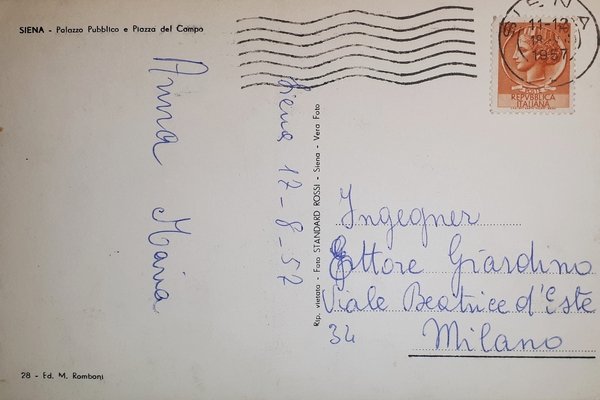 SIENA - Palazzo Pubblico e Piazza del Campo
Anna Maria
Siena 17-8-57
Rip. vietata - Foto STANDARD ROSSI - Siena - Vera Foto
SIENA
11-12
18
1957
POSTE
REPVBBLICA
ITALIANA
Ingegner
Ettore Giardino
Viale Beatrice d'Este
34 Milano
28 - Ed. M. Romboni